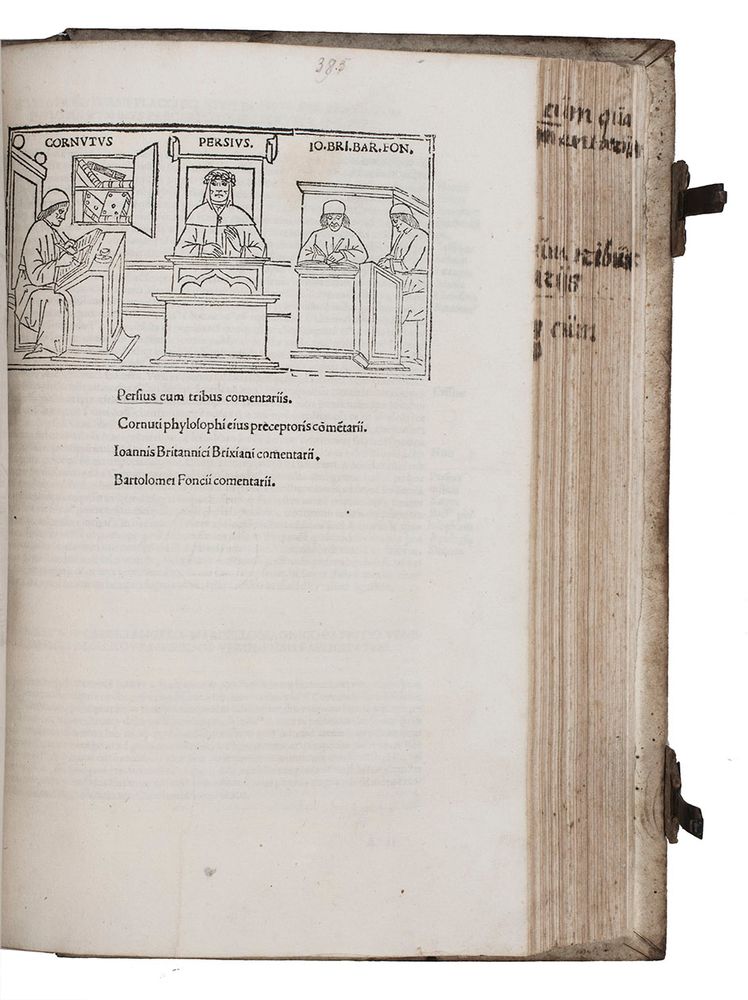 385
CORNVTVS PERSIVS. IO.BRI.BAR.FON.
Persius cum tribus comentariis.
Cornuti phylosophi eius preceptoris cōmētarii.
Ioannis Britannici Brixiani comentarii.
Bartolomei Foncii comentarii.
cūm
cūm